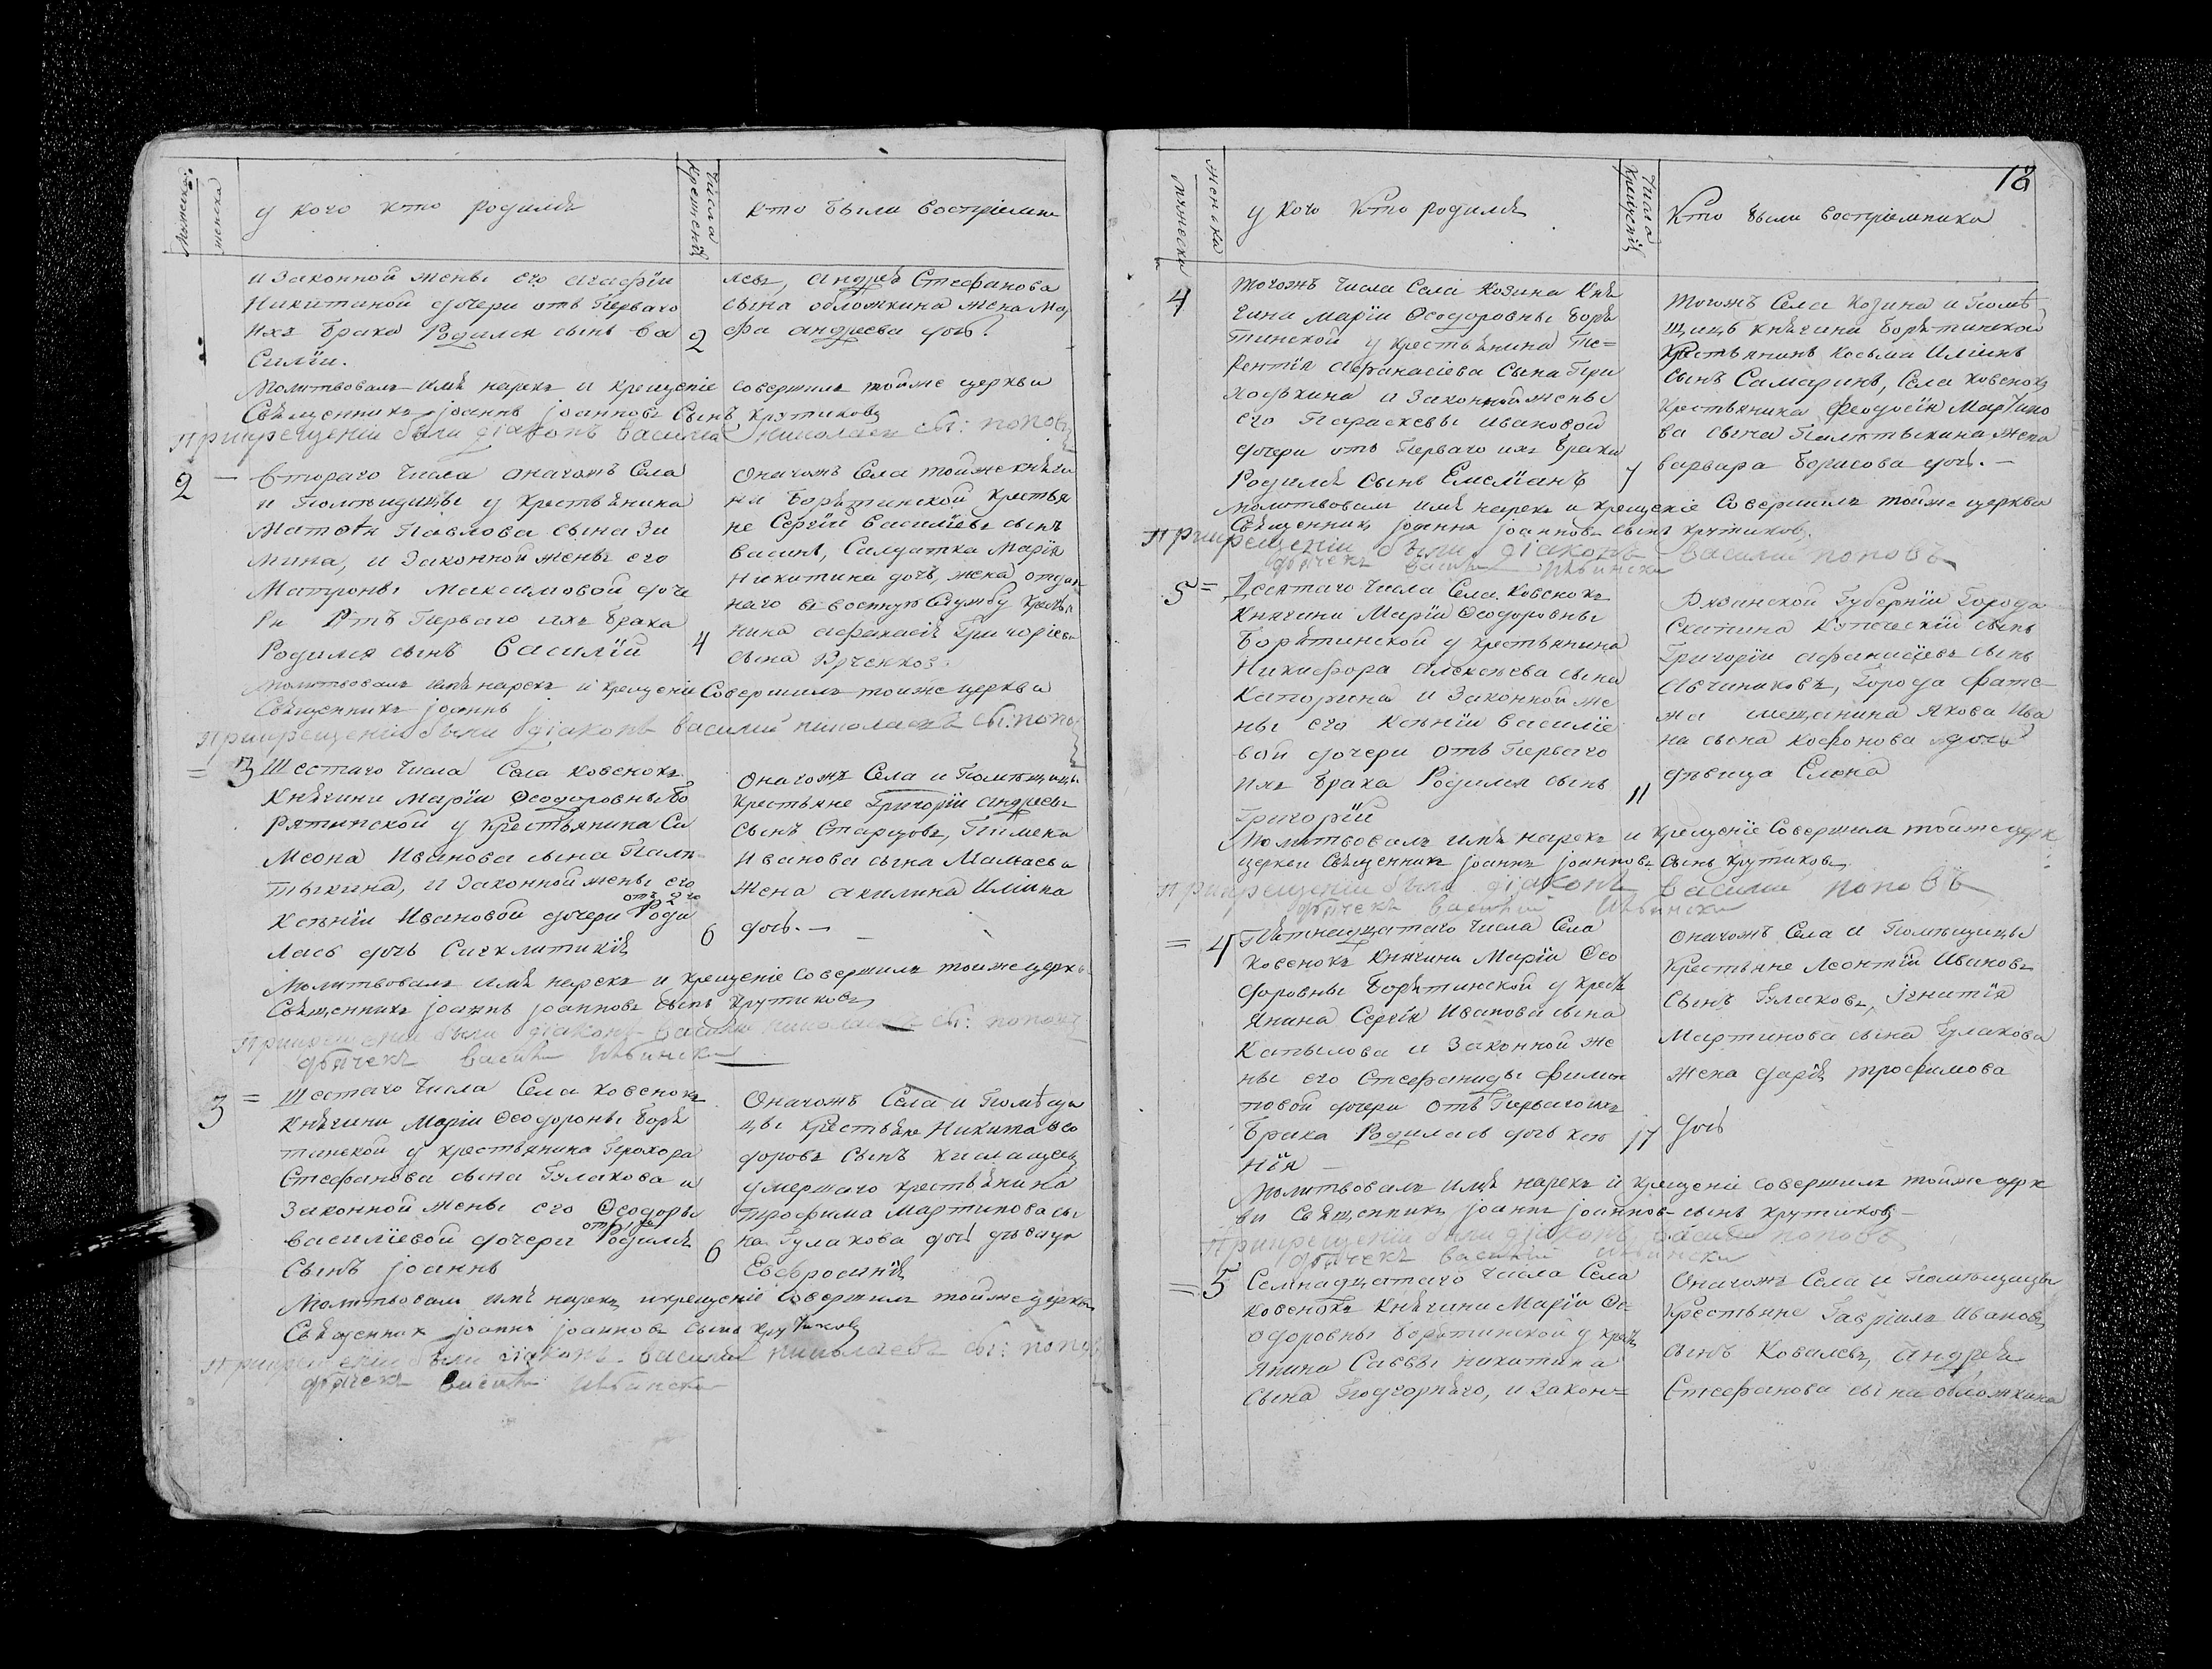 Мужеска
женска
у кого кто родился
Числа
крещенія
кто были восприемни
и Законной жены его Агафіи
Никитиной дочери отъ Перваго
ихъ брака Родился сынъ Ва
силіи.
2
левъ, Андрея Стефанова
сына обложкина жена Мар
фа андреева дочь.
Молитвовалъ имя нарекъ и крещеніе совершилъ тойже церкви
Священникъ Іоаннъ Іоанновъ Сынъ Крутиковъ
Прикрещеніи были діаконъ василій николаевъ сы: поповъ
2
Втораго Числа оногожъ Села
и Помѣщицы у крестьянина
Матвѣя Павлова сына Зи
мина, и Законной жены его
Матроны Максимовой доче
ри Отъ Перваго ихъ брака
Родился сынъ Василій
4
Оногожъ Села тойже княги
ни Борятинской крестья
не Сергій Василіевъ сынъ
Марія
Никитина дочь, жена отдан
наго в военную Службу кресть
нина афанасія Григоріева
сына
Молитвовалъ имя нарекъ и крещеніе Совершилъ тойже церкви
Священникъ Іоаннъ
Прикрещеніи были діаконъ василій николаевъ сы: поповъ
3
Шестаго Числа Села Ковенокъ
Княгини Маріи Ѳеодоровны Бо
рятинской у крестьянина Си
меона Иванова сына Пали
тыкина, и Законной жены его
отъ 2 го
Ксеніи Ивановой дочери Роди
лась дочь Сигклитикія
6
Оногожъ Села и Помѣщицы
крестьяне Григорій андреевъ
сынъ Старцовъ, Пимена
Иванова сына Мамаева
жена акилина Иліина
дочь.
Молитвовалъ имя нарекъ и крещеніе Совершилъ тойже церкви
Священникъ Іоаннъ Іоанновъ сынъ Крутиковъ
Прикрещеніи были діаконъ василій николаевъ сы: поповъ
дьячекъ василій
3
Шестаго Числа Села Ковенокъ
Княгини Маріи Ѳеодоровны Боря
тинской у крестьянина Прохора
Стефанова сына Гулакова и
Законной жены его Ѳеодоры
Василіевой дочери Родился
сынъ Іоаннъ
6
Оногожъ Села и Помѣщи
цы крестьяне Никита Ѳео
доровъ сынъ
умершаго крестьянина
Трофима Мартинова сы
на Гулакова дочь дѣвица
Евфросинія
Молитвовалъ имя нарекъ и крещеніе Совершилъ тойже церкви
Священникъ Іоаннъ Іоанновъ сынъ Крутиковъ
Прикрещеніи были діаконъ василій николаевъ сы: поповъ
дьячекъ василій
18
женска
мужеска
у кого кто родился
Числа
крещенія
Кто были восприемники
4
тогожъ Числа Села Козина Кня
гини Маріи Ѳеодоровны Боря
тинской у крестьянина Те=
рентія Афанасіева Сына При
ходькина и Законной жены
его Параскевы Ивановой
дочери отъ Перваго ихъ брака
Родился Сынъ Емеліанъ
7
тогожъ Села Козина и Помѣ
щицѣ княгини Борятинской
крестьянинъ Косьма Иліинъ
сынъ Самаринъ, Села Ковенокъ
крестьянина Феодосія Мартино
ва сына Палитыкина жена
варвара Борисова дочь.
Молитвовалъ имя нарекъ и крещеніе Совершилъ тойже церкви
Священникъ Іоаннъ Іоанновъ сынъ Крутиковъ.
Прикрещеніи были діаконъ василій поповъ
дьячекъ василій
5
Десятаго Числа Села Ковенокъ
Княгини Маріи Ѳеодоровны
Борятинской у крестьянина
Никифора Алексѣева сына
Капорина и Законной же
ны его Ксеніи Василіе
вой дочери Отъ Перваго
ихъ брака Родился сынъ
Григорій
11
Рязанской Губерніи Города
Скопина Купеческій сынъ
Григорій афанасіевъ сынъ
Овчиниковъ, Города Фате
жа мещанина Якова Ива
на сына Кофонова дочь
дѣвица Елена
Молитвовалъ имя нарекъ и крещеніе Совершилъ тойже церк
церкви Священникъ Іоаннъ Іоанновъ Сынъ Крутиковъ
Прикрещеніи были діаконъ василій поповъ
дьячекъ василій
4
Пятнадцатаго Числа Села
Ковенокъ Княгини Маріи Ѳео
доровны Борятинской у крест
янина Сергія Иванова сына
Капылова и Законной же
ны его Стефаниды Филип
повой дочери Отъ Перваго ихъ
брака Родилась дочь ксе
нія
17
Оногожъ Села и Помѣщицы
крестьяне Леонтій Ивановъ
сынъ Гулаковъ, Игнатія
Мартинова сына Гулакова
жена дарія трофимова
дочь
Молитвовалъ имя нарекъ и крещеніе совершилъ тойже церк
ви Священникъ Іоаннъ Іоанновъ сынъ Крутиковъ
Прикрещеніи были діаконъ василій поповъ
дьячекъ василій
5
Семнадцатаго Числа Села
Ковенокъ Княгини Маріи Ѳе
одоровны Борятинской у крест
янина Саввы никитина
сына Подгорнаго, и Закон=
Оногожъ Села и Помѣщицы
крестьяне Гавріилъ Ивановъ
сынъ Ковалевъ, Андрея
Стефанова сына обложкина